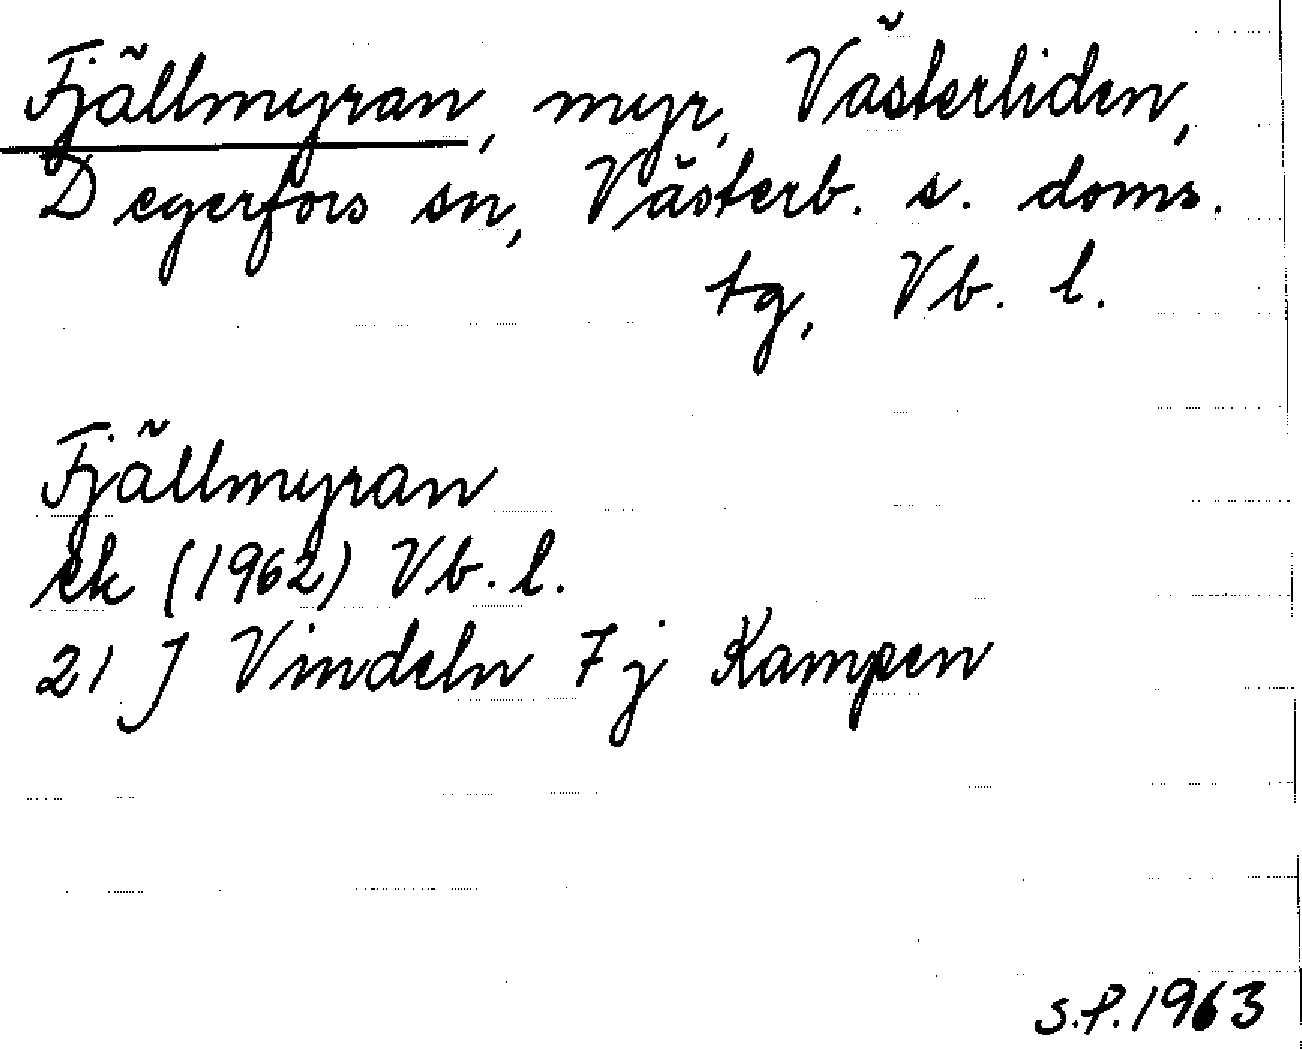 Fjällmyran, myr, Västerliden,
Degerfors sn, Västerb. s. doms.
tg, Vb. l.
Fjällmyran
ek (1962) Vb. l.
21 J Vindeln 7 j Kampen
S.P. 1963